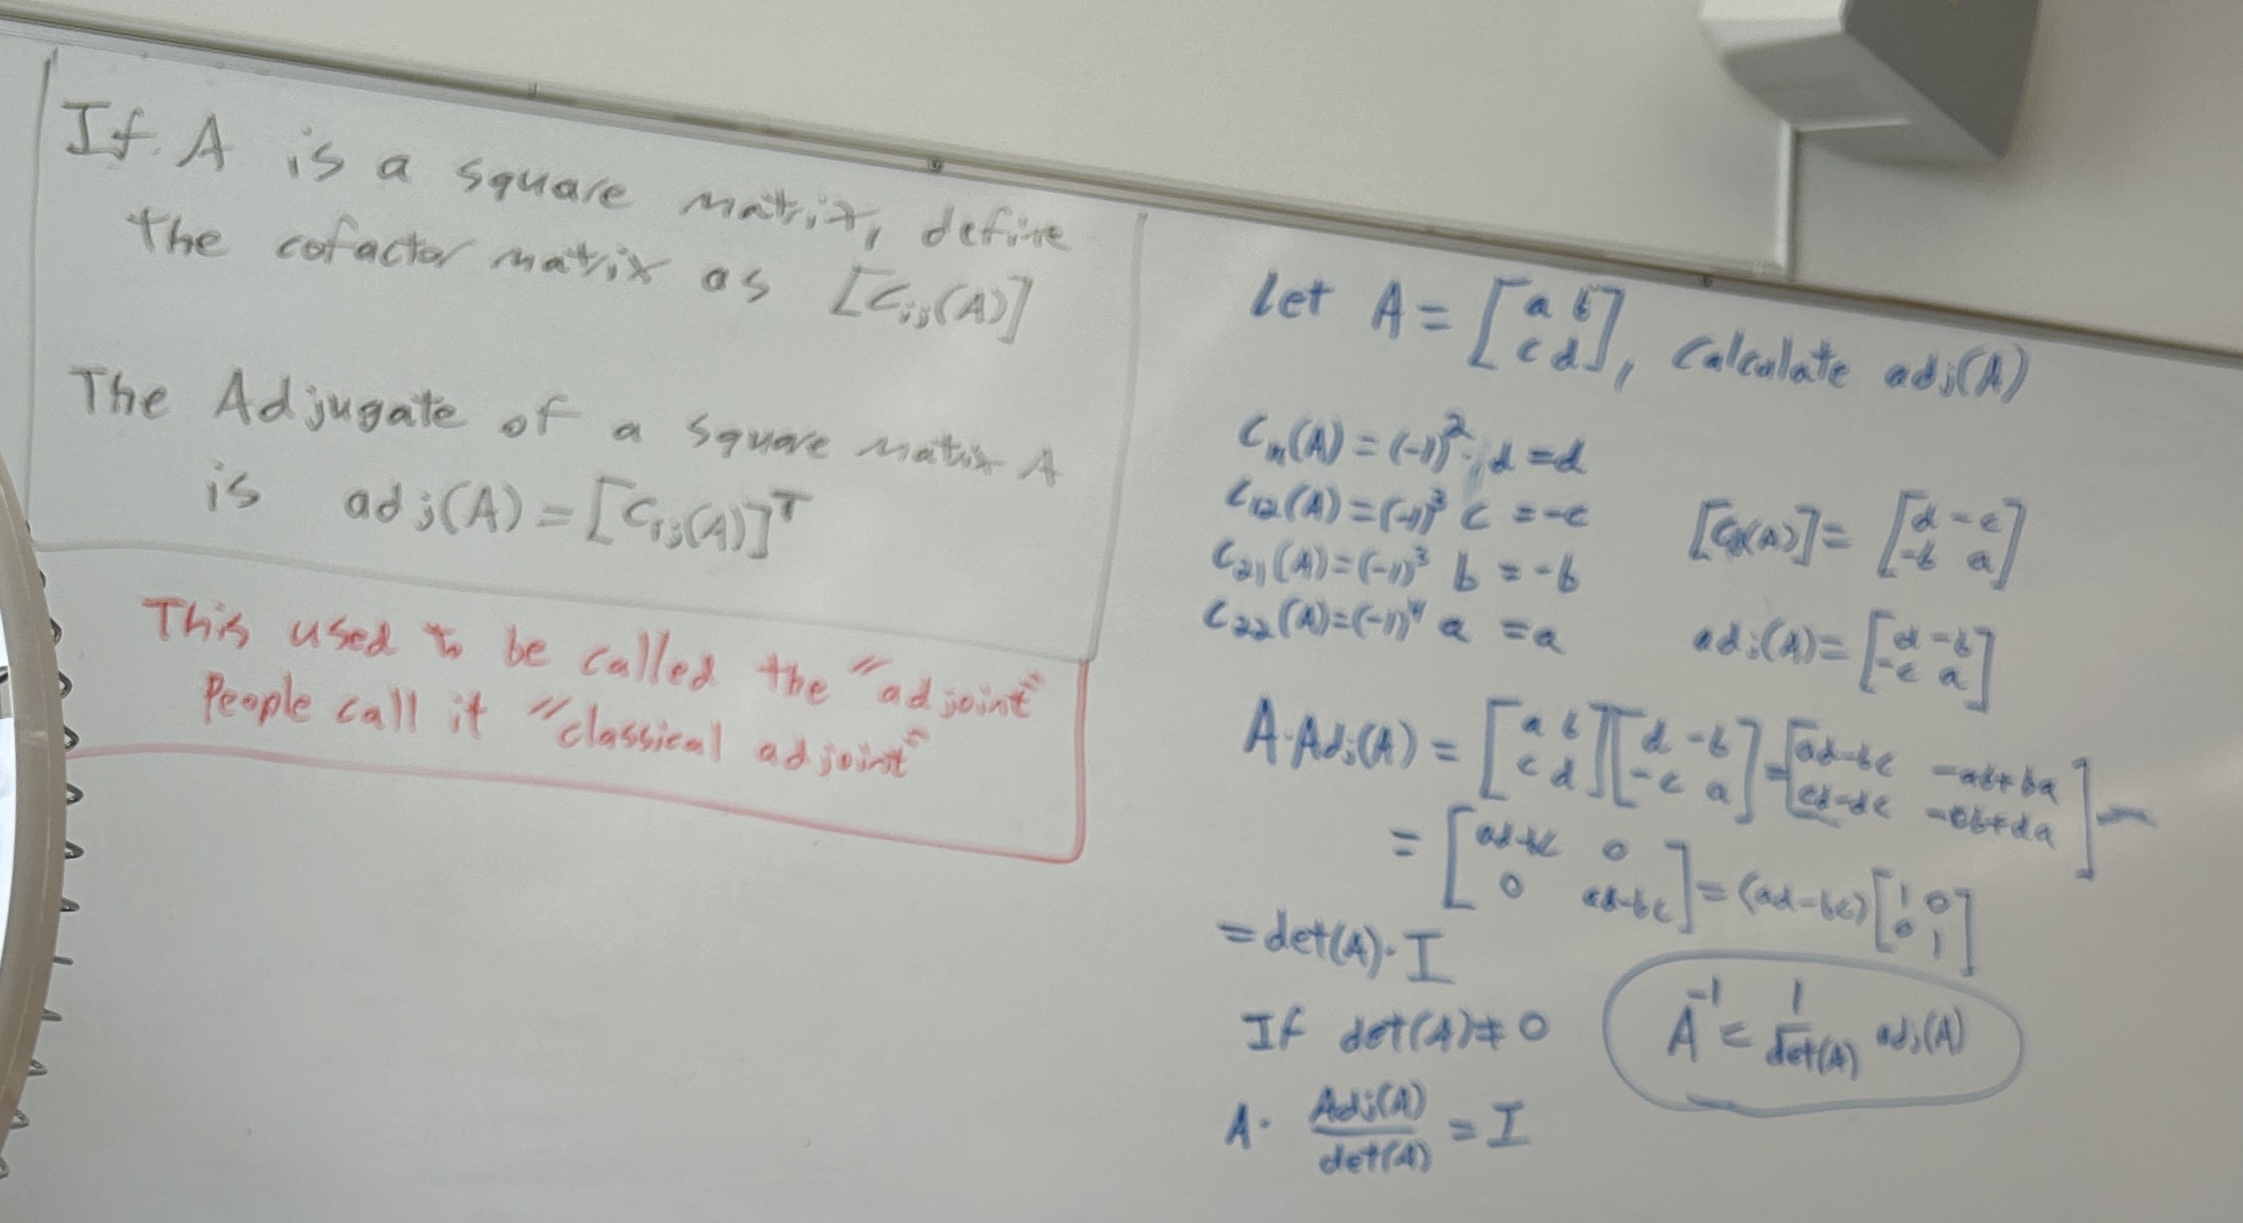 If A is a square matrix, define
the cofactor matrix as [Cij(A)]
The Adjugate of a square matrix A
is adj(A) = [Cij(A)]^T
This used to be called the "adjoint"
People call it "classical adjoint"
Let A = [a b; c d], calculate adj(A)
C11(A) = (-1)^2 · d = d
C12(A) = (-1)^3 c = -c
C21(A) = (-1)^3 b = -b
C22(A) = (-1)^4 a = a
[Cij(A)] = [d -c; -b a]
adj(A) = [d -b; -c a]
A·Adj(A) = [a b; c d][d -b; -c a] = [ad-bc -ab+ba; cd-dc -cb+da] -
= [ad-bc 0; 0 ad-bc] = (ad-bc)[1 0; 0 1]
= det(A)·I
If det(A) ≠ 0
A · Adj(A)/det(A) = I
A^-1 = 1/det(A) adj(A)